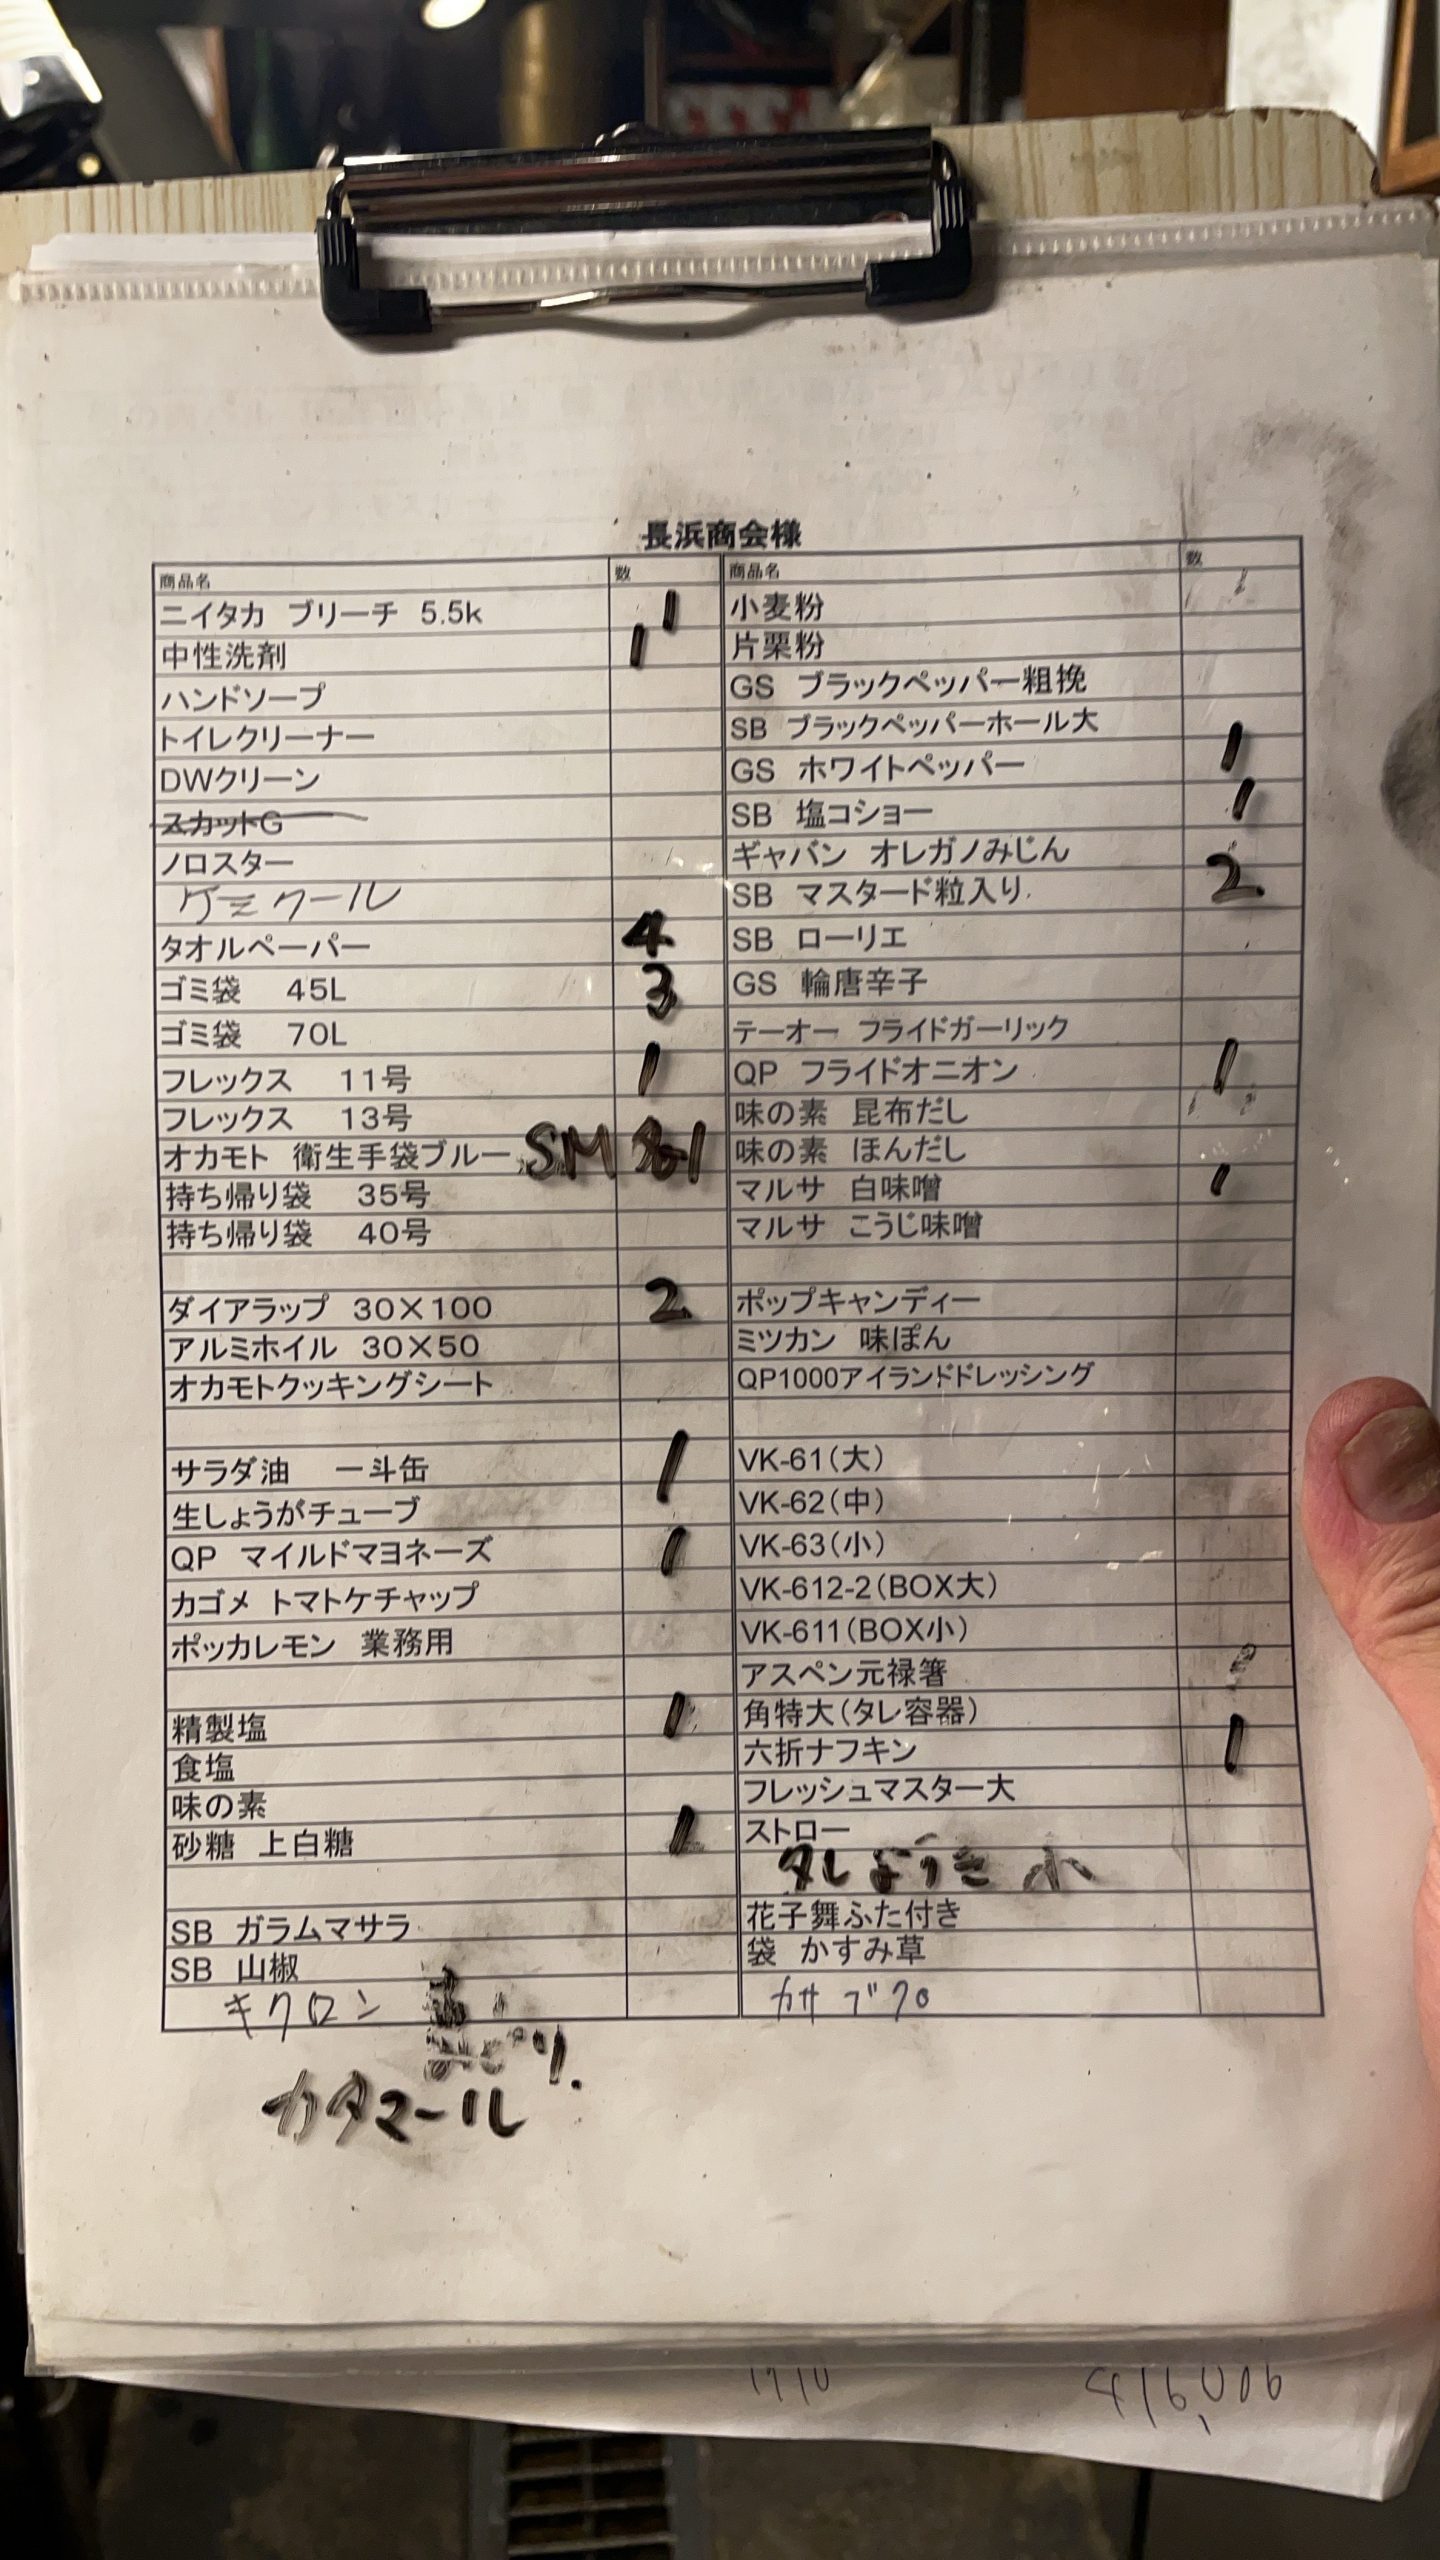 長浜商会様
商品名 数
ニイタカ ブリーチ 5.5k 1
中性洗剤 1
ハンドソープ
トイレクリーナー
DWクリーン
スカットG
ノロスター
ケミクール
タオルペーパー 4
ゴミ袋 45L 3
ゴミ袋 70L
フレックス 11号 1
フレックス 13号
オカモト 衛生手袋ブルー SM 1
持ち帰り袋 35号
持ち帰り袋 40号
ダイアラップ 30×100 2
アルミホイル 30×50
オカモトクッキングシート
サラダ油 一斗缶 1
生しょうがチューブ
QP マイルドマヨネーズ 1
カゴメ トマトケチャップ
ポッカレモン 業務用
精製塩 1
食塩
味の素
砂糖 上白糖 1
SB ガラムマサラ
SB 山椒
キクロン
カタマール
商品名 数
小麦粉
片栗粉
GS ブラックペッパー粗挽
SB ブラックペッパーホール大
GS ホワイトペッパー 1
SB 塩コショー 1
ギャバン オレガノみじん
SB マスタード粒入り 2
SB ローリエ
GS 輪唐辛子
テーオー フライドガーリック
QP フライドオニオン 1
味の素 昆布だし
味の素 ほんだし
マルサ 白味噌 1
マルサ こうじ味噌
ポップキャンディー
ミツカン 味ぽん
QP1000アイランドドレッシング
VK-61(大)
VK-62(中)
VK-63(小)
VK-612-2(BOX大)
VK-611(BOX小)
アスペン元禄箸
角特大(タレ容器)
六折ナフキン 1
フレッシュマスター大
ストロー
タレようき 小
花子舞ふた付き
袋 かすみ草
カサブクロ